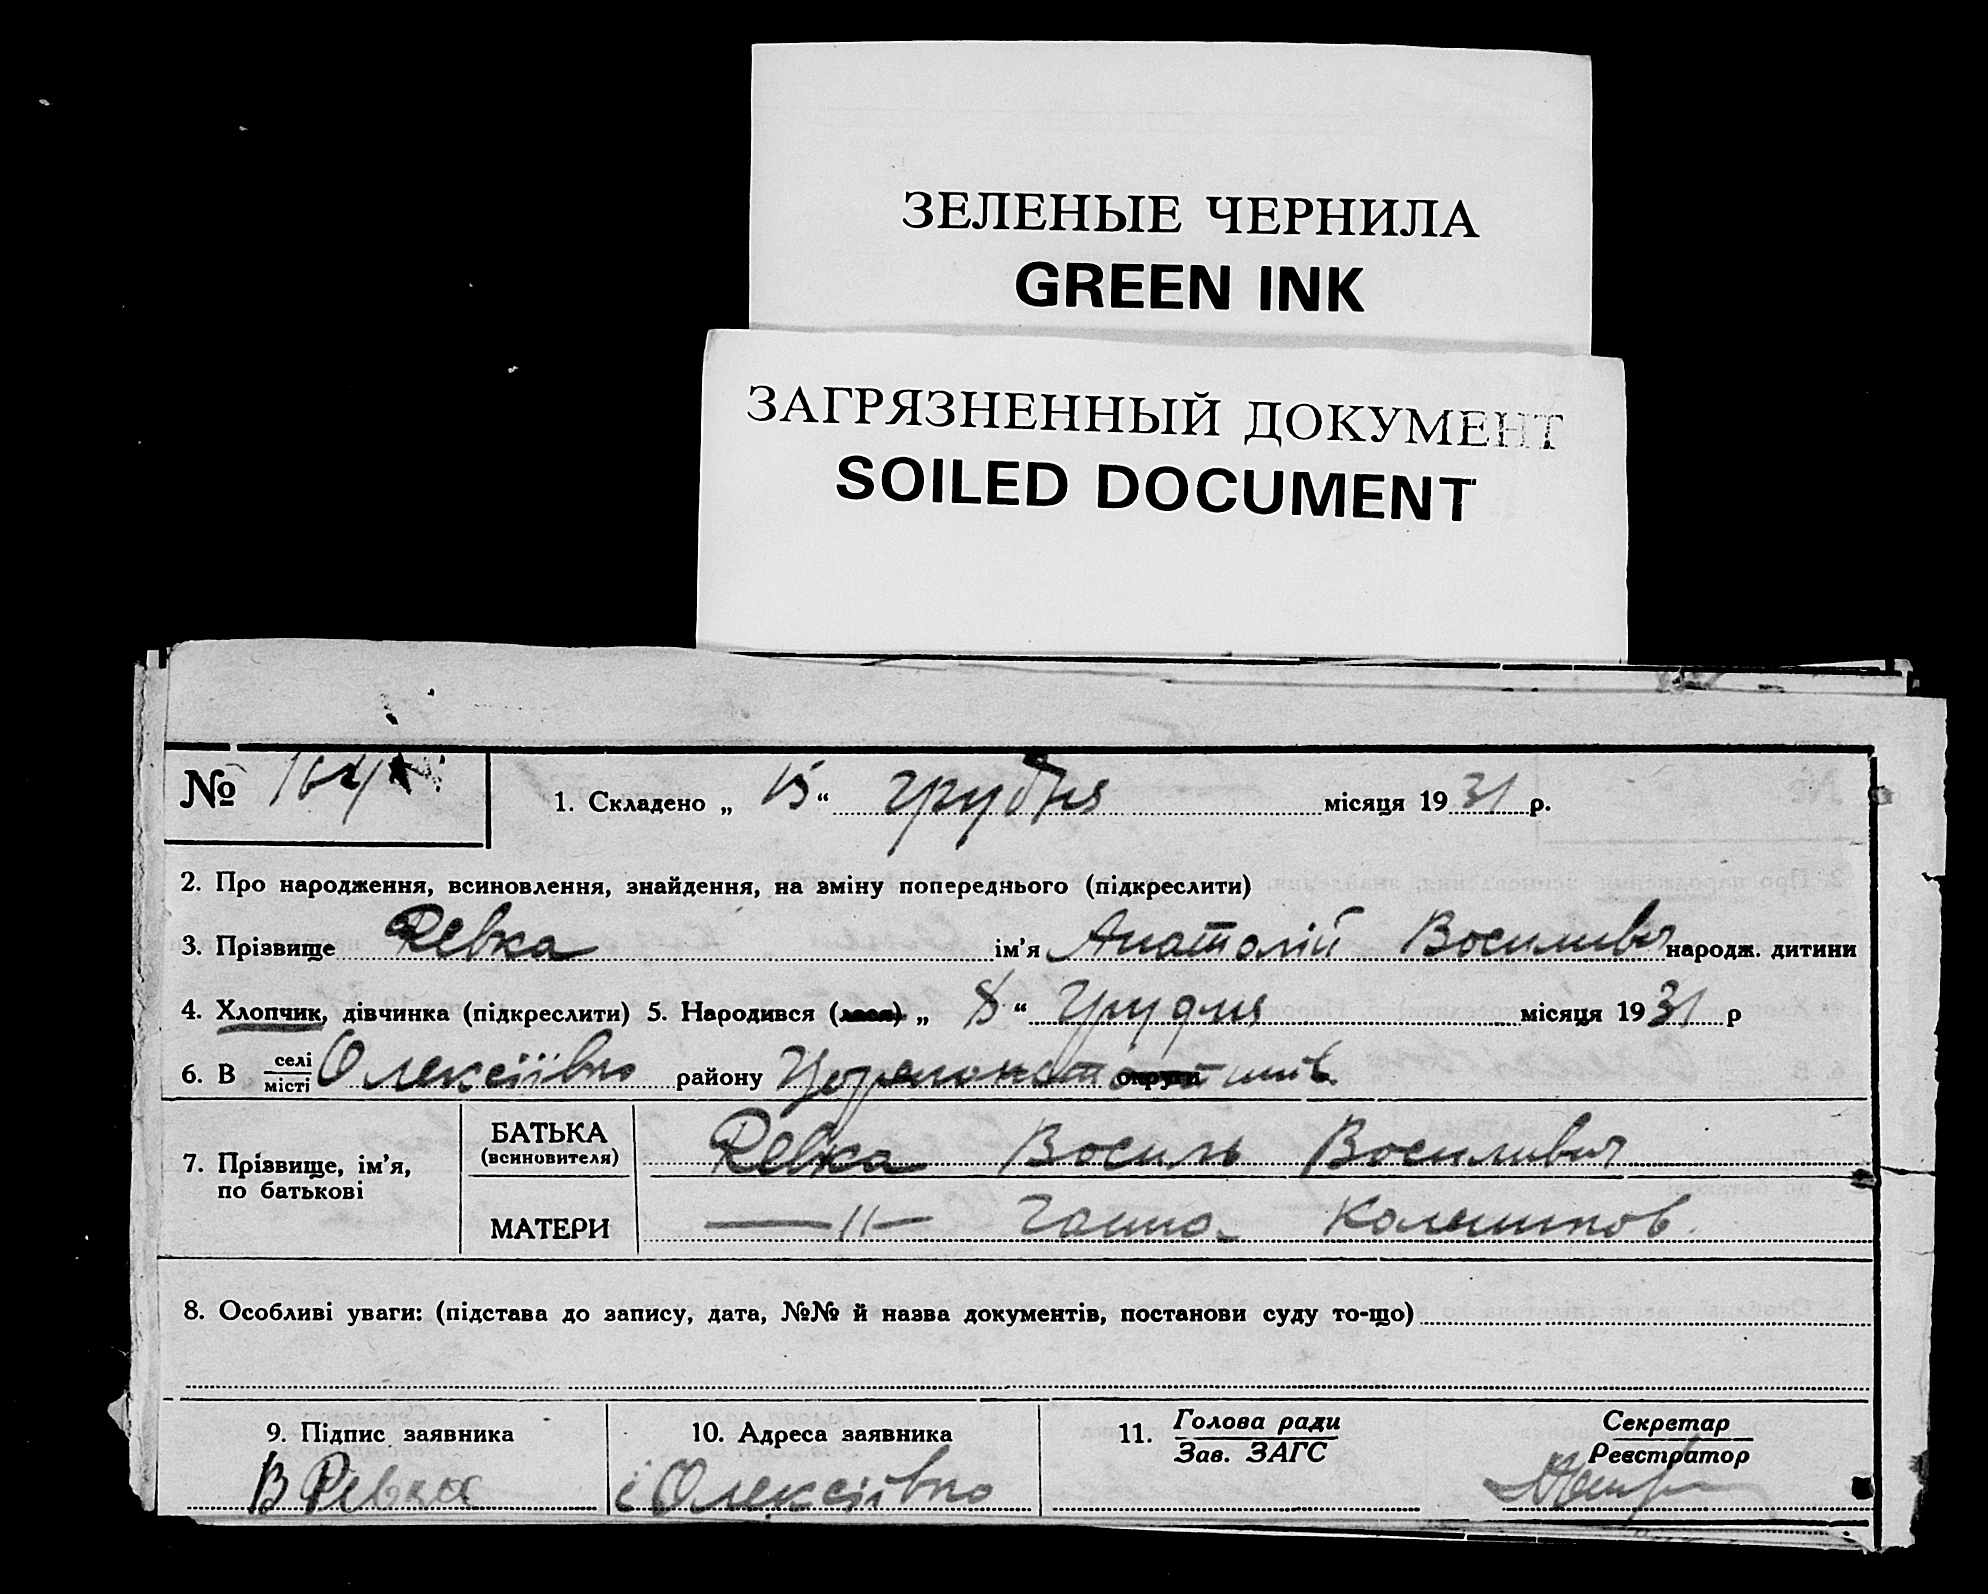 ЗЕЛЕНЫЕ ЧЕРНИЛА
GREEN INK
ЗАГРЯЗНЕННЫЙ ДОКУМЕНТ
SOILED DOCUMENT
№ 164
1. Складено „ 15 “ грудня місяця 19 31 р.
2. Про народження, всиновлення, знайдення, на зміну попереднього (підкреслити)
3. Прізвище Ревка ім’я Анатолій Восиливич народж. дитини
4. Хлопчик, дівчинка (підкреслити) 5. Народився (лася) „ 8 “ Грудня місяця 19 31 р
6. В селі/місті Олексіївно району округи
7. Прізвище, ім’я, по батькові
БАТЬКА (всиновителя) Ревка Восиль Восиливич
МАТЕРИ —〃— Ганна
8. Особливі уваги: (підстава до запису, дата, №№ й назва документів, постанови суду то-що)
9. Підпис заявника
В Ревка
10. Адреса заявника
с Олексіївно
11. Голова ради
Зав. ЗАГС
Секретар
Реєстратор